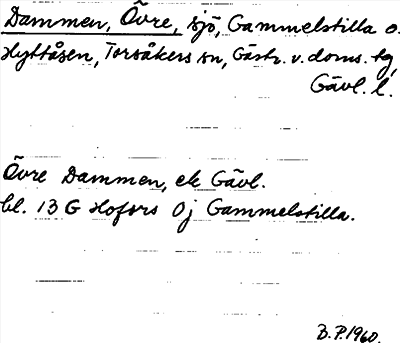 Dammen, Övre, sjö, Gammelstilla o.
Hyttåsen, Torsåkers sn, Gästr. v. doms. tg,
Gävl. l.
Övre Dammen, ek Gävl.
bl. 13 G Hofors 0j Gammelstilla.
B.P. 1960.